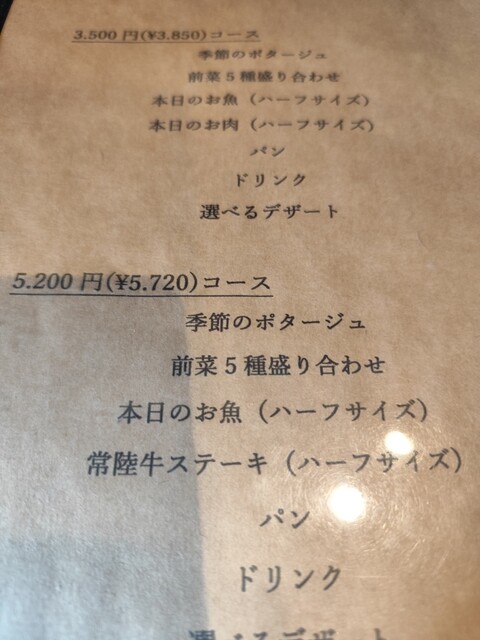 3.500円(¥3.850)コース
季節のポタージュ
前菜5種盛り合わせ
本日のお魚（ハーフサイズ）
本日のお肉（ハーフサイズ）
パン
ドリンク
選べるデザート
5.200円(¥5.720)コース
季節のポタージュ
前菜5種盛り合わせ
本日のお魚（ハーフサイズ）
常陸牛ステーキ（ハーフサイズ）
パン
ドリンク
選べるデザート